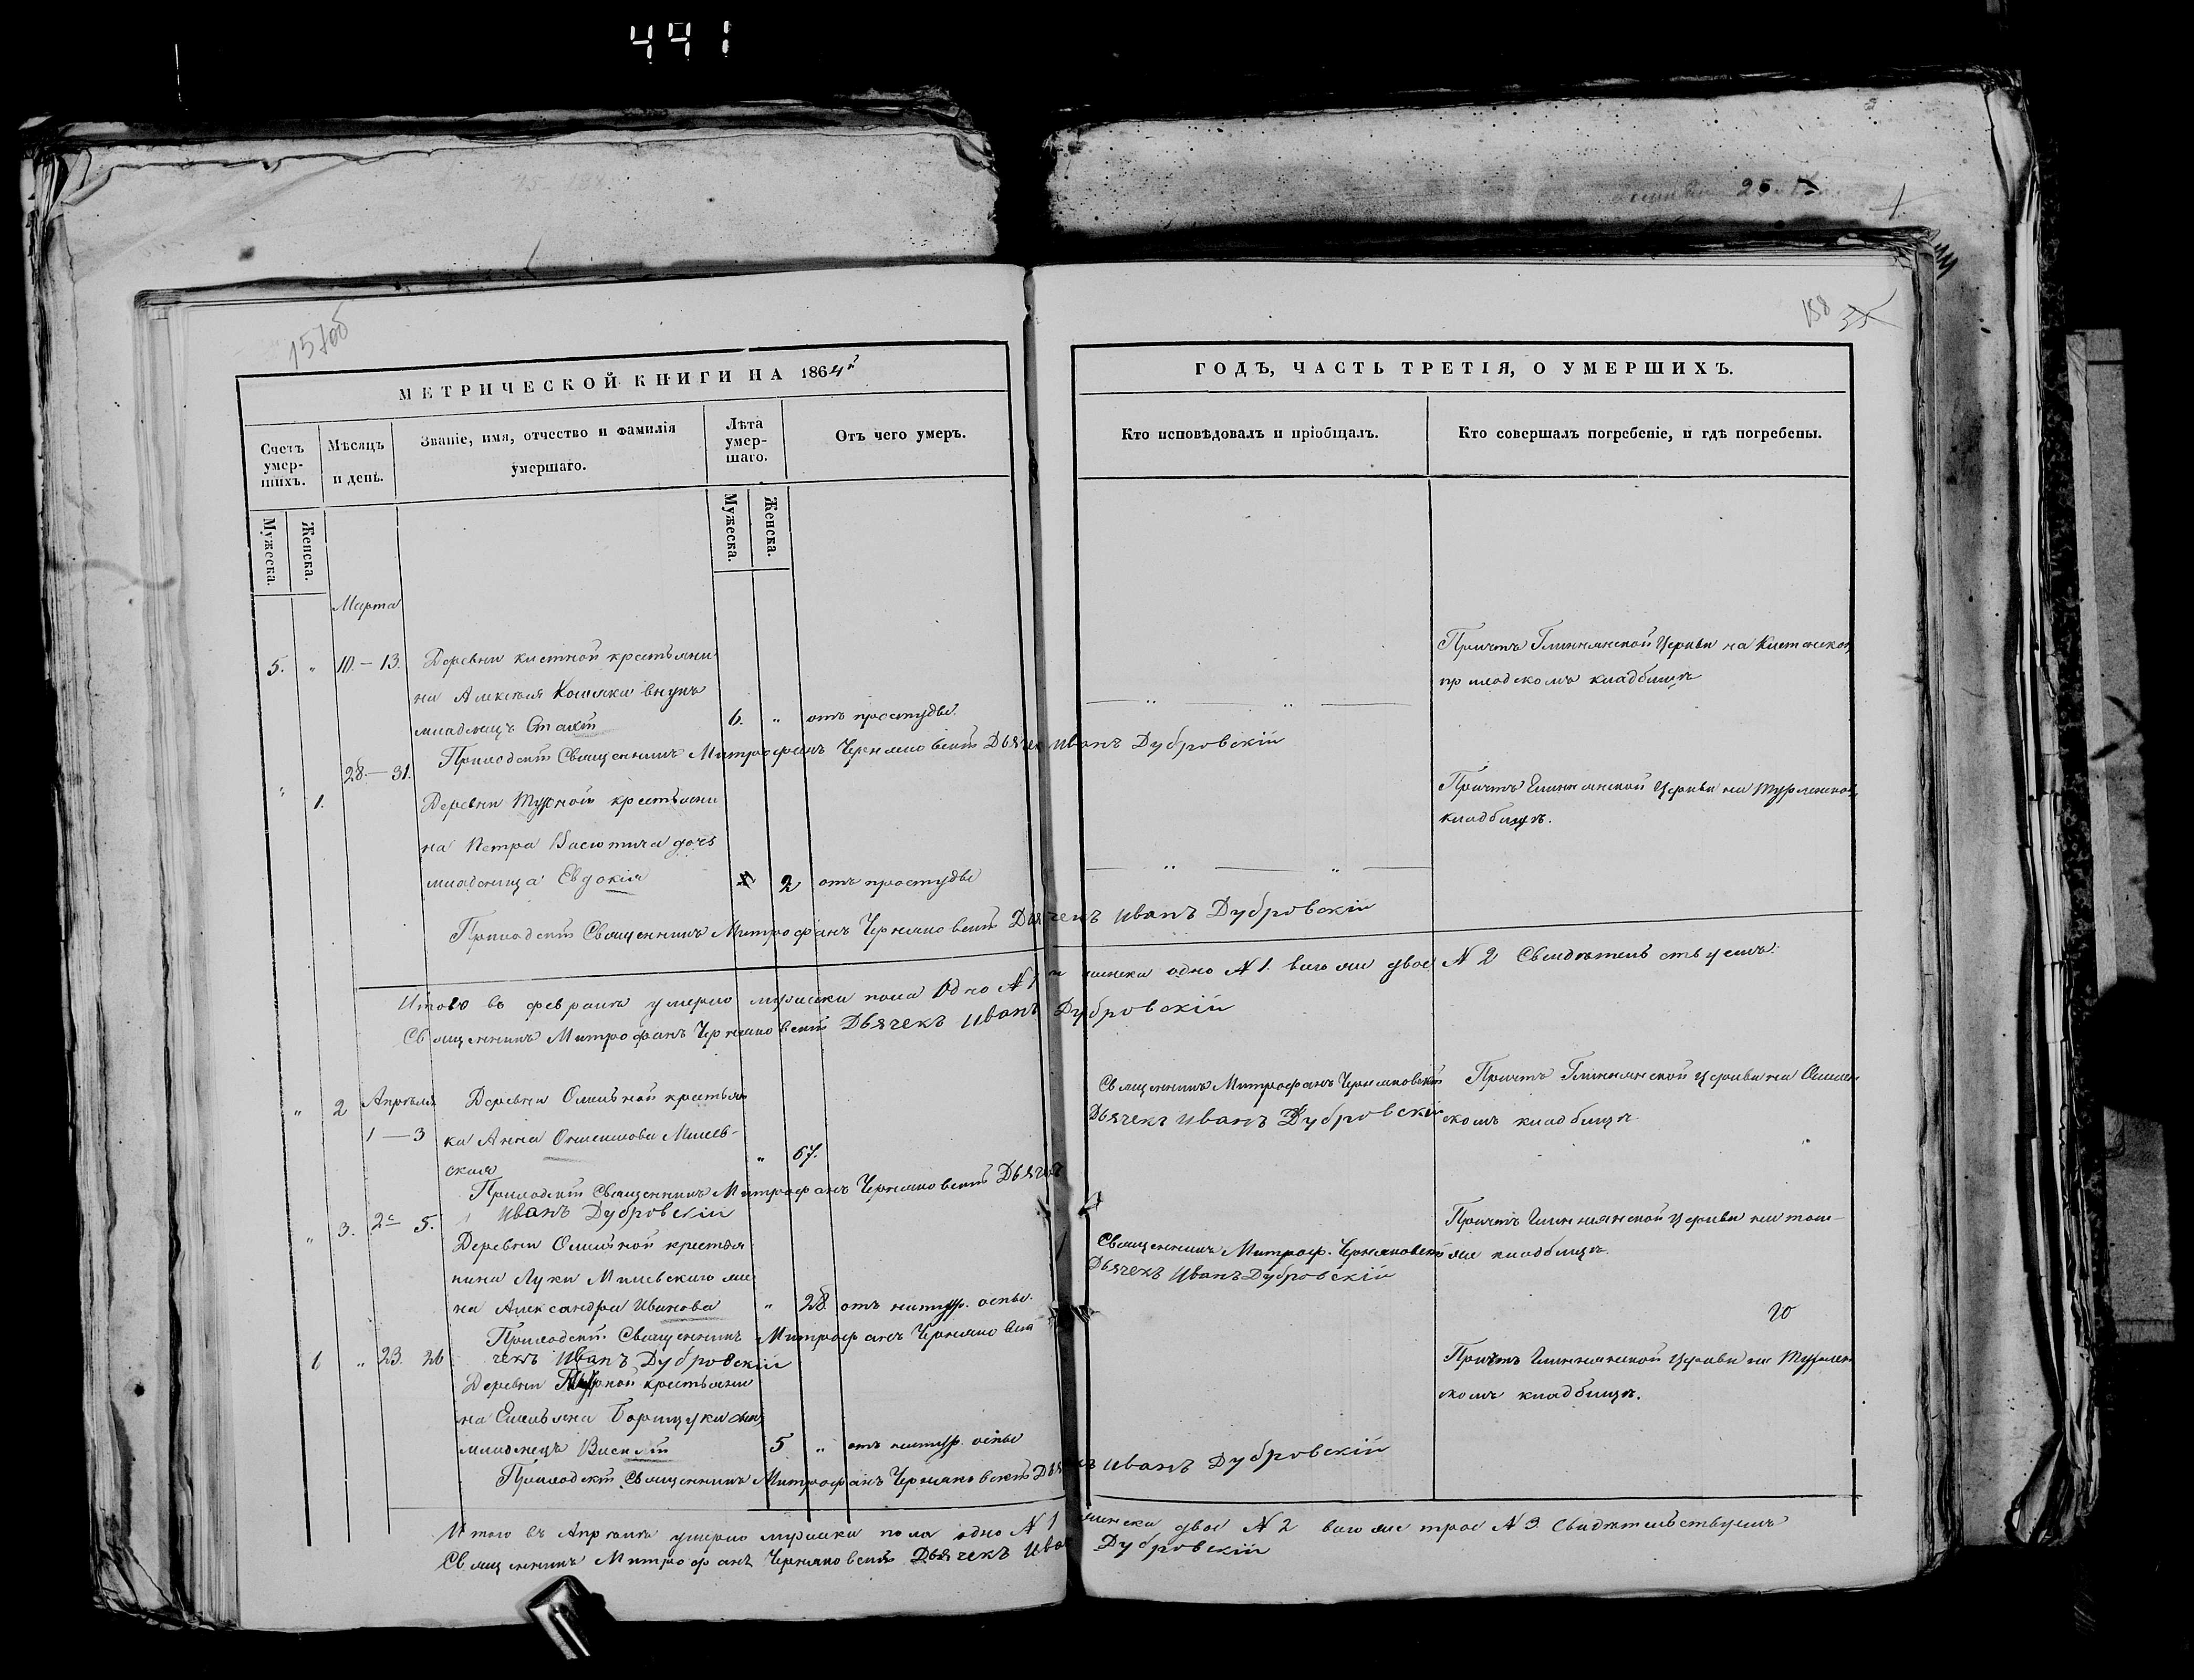 441
25
157об
158
35
МЕТРИЧЕСКОЙ КНИГИ НА 1864й
ГОДЪ, ЧАСТЬ ТРЕТІЯ, О УМЕРШИХЪ.
Счетъ умер-
шихъ.
Мѣсяцъ
и день.
Званіе, имя, отчество и фамилія
умершаго.
Лѣта
умер-
шаго.
Отъ чего умеръ.
Кто исповѣдовалъ и пріобщалъ.
Кто совершалъ погребеніе, и гдѣ погребены.
Мужеска.
Женска.
Мужеска.
Женска.
Марта
5. " 10.—13. Деревни крестьяни
на Алексѣя внукъ
младенецъ 6. " отъ простуды.
Причтъ Глиннянской Церкви на
кладбищѣ
Приходскій Священникъ Митрофанъ Черняковскій Дьячекъ Иванъ Дубровскій
" 1. 28.—31. Деревни Турной крестьяни
на Петра Васютича дочь
младеница Евдокія 2 отъ простуды
Причтъ Глиннянской Церкви на
кладбищѣ.
Приходскій Священникъ Митрофанъ Черняковскій Дьячекъ Иванъ Дубровскій
Итого въ февралѣ умерло мужеска пола одно № 1 женска одно № 1. двое № 2 Свидѣтельствуемъ:
Священникъ Митрофанъ Черняковскій Дьячекъ Иванъ Дубровскій
" 2 Апрѣля Деревни крестьян
1—3 ка Анна
ская " 67.
Священникъ Митрофанъ Черняковскій
Дьячекъ Иванъ Дубровскій
Причтъ Глиннянской Церкви на
скомъ кладбищѣ
Приходскій Священникъ Митрофанъ Черняковскій Дьячекъ
Иванъ Дубровскій
" 3. 2 5. Деревни крестья
нина Луки же
на Александра Иванова " 28 отъ натур. оспы.
Священникъ Митроф. Черняковскій
Дьячекъ Иванъ Дубровскій
Причтъ Глиннянской Церкви на том-
же кладбищѣ.
20
Приходскій Священникъ Митрофанъ Черняковскій
чекъ Иванъ Дубровскій
1 " 23. 26 Деревни Турной крестьяни
на Емельяна сын
младенецъ Василій 5 " отъ натур. оспы
Причтъ Глиннянской Церкви на
скомъ кладбищѣ.
Приходскій Священникъ Митрофанъ Черняковскій Дьячекъ Иванъ Дубровскій
Итого въ Апрѣлѣ умерло мужеска пола одно № 1 женска двое № 2 трое № 3. Свидѣтельствуемъ
Священникъ Митрофанъ Черняковскій Дьячекъ Иванъ Дубровскій